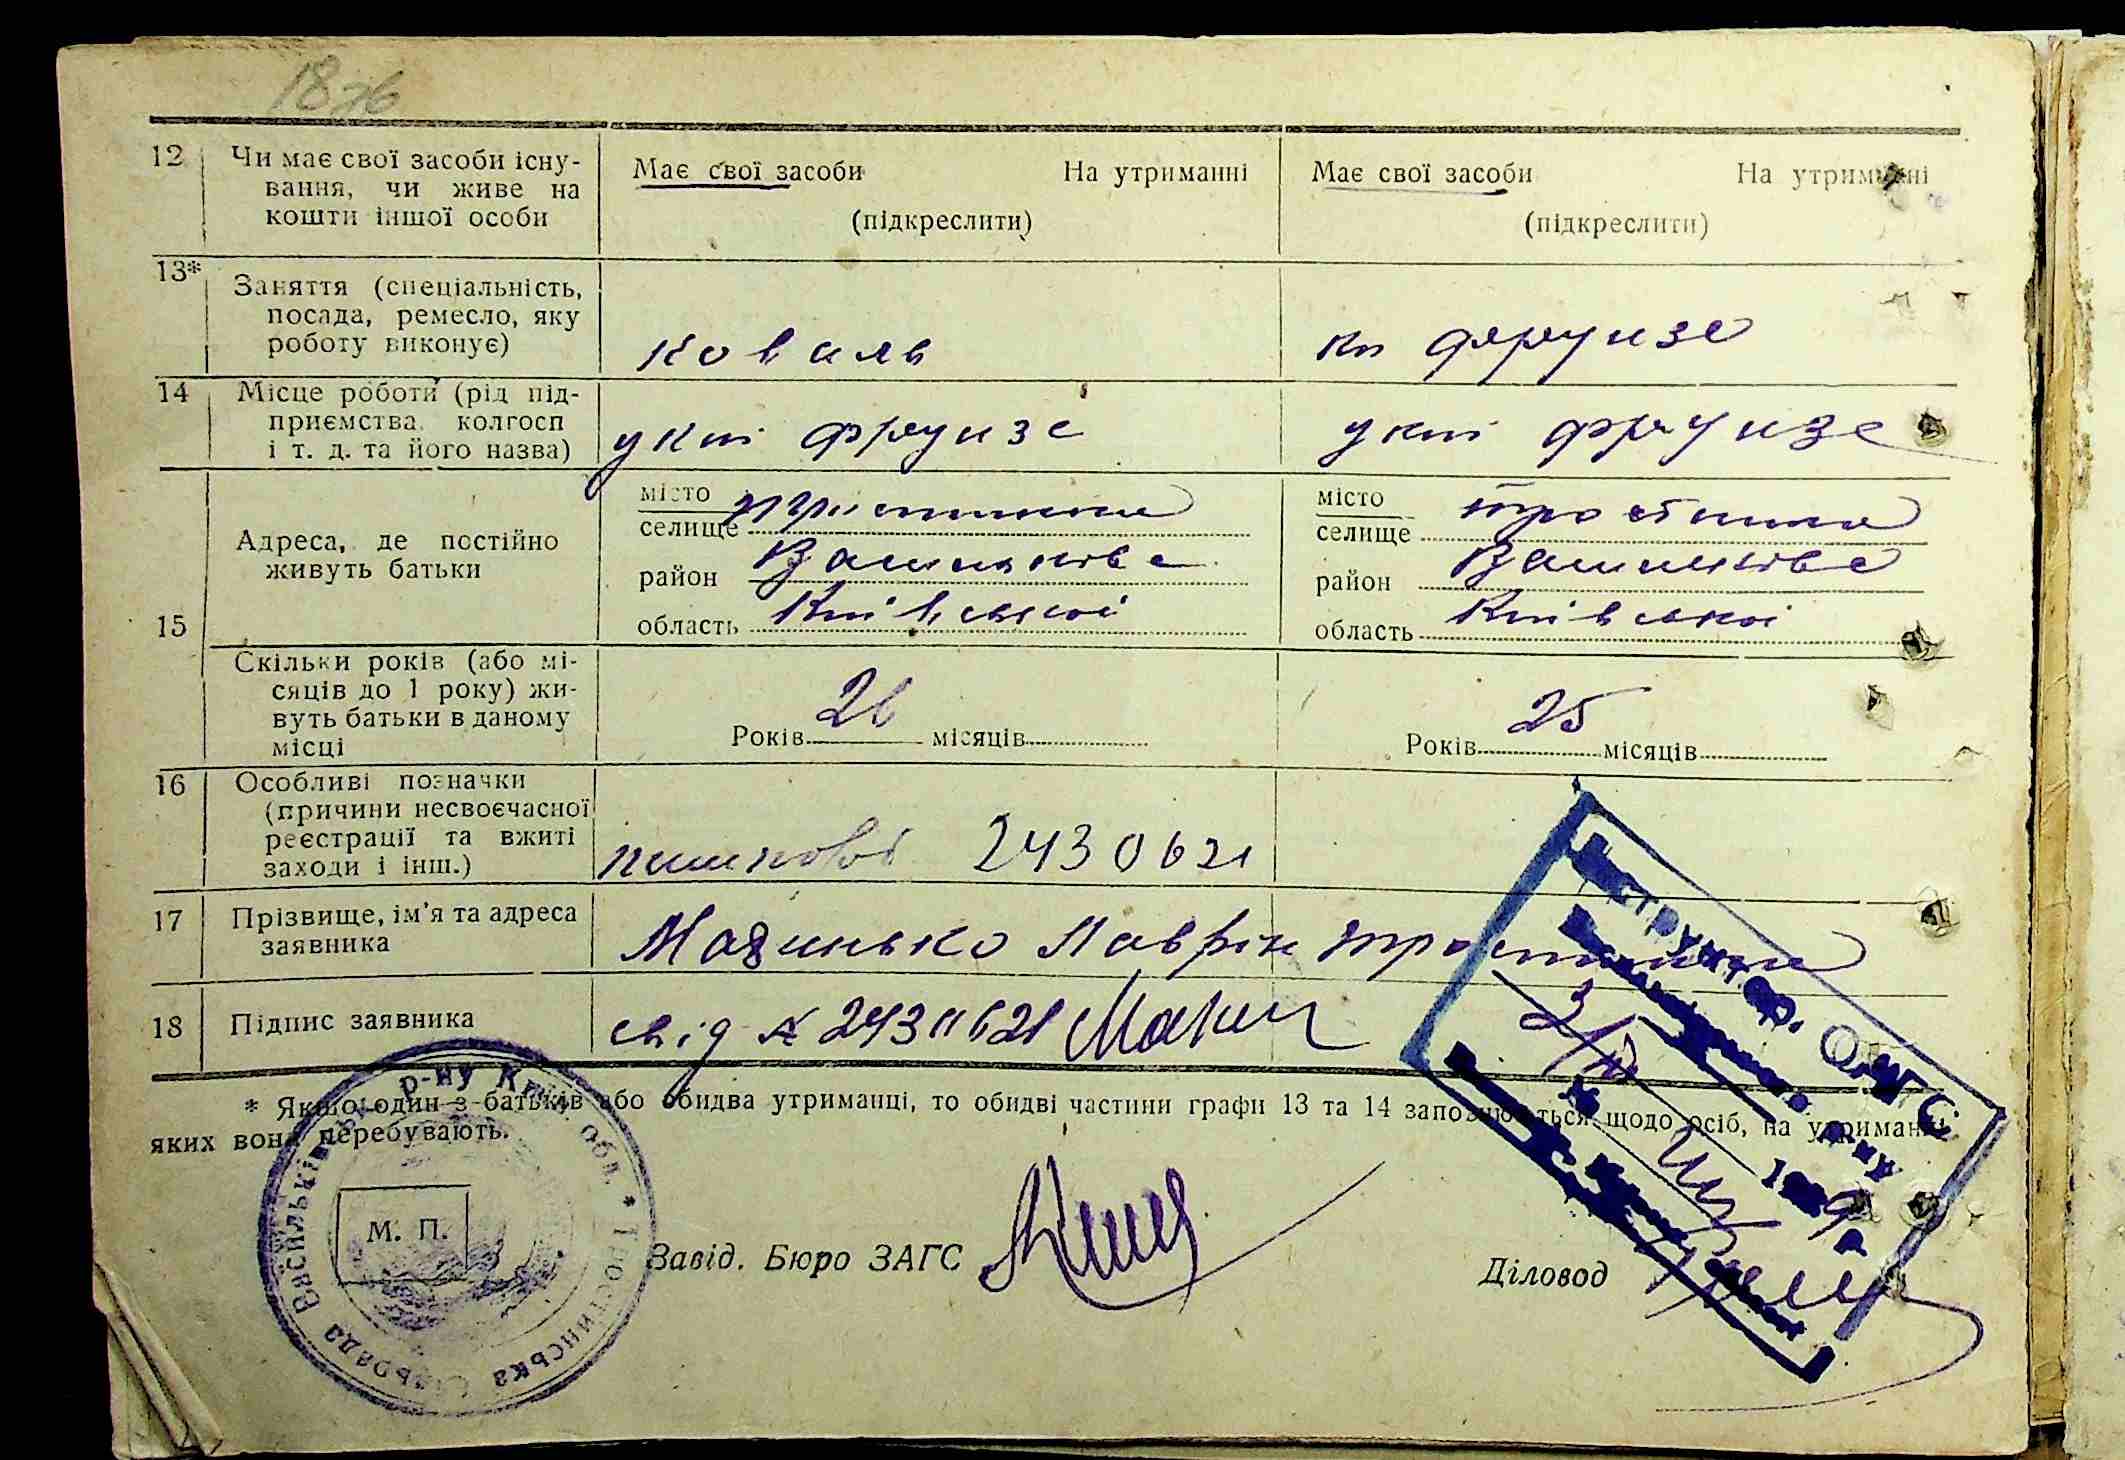 12 Чи має свої засоби існу-
вання, чи живе на
кошти іншої особи
Має свої засоби На утриманні
(підкреслити)
Має свої засоби На утриманні
(підкреслити)
13* Заняття (спеціальність,
посада, ремесло, яку
роботу виконує)
коваль
кп фрунзе
14 Місце роботи (рід під-
приємства, колгосп
і т. д. та його назва)
у кпі фрунзе
у кпі фрунзе
15 Адреса, де постійно
живуть батьки
місто
селище
район
область Київської
місто
селище
район
область Київської
Скільки років (або мі-
сяців до 1 року) жи-
вуть батьки в даному
місці
Років 26 місяців
Років 25 місяців
16 Особливі позначки
(причини несвоєчасної
реєстрації та вжиті
заходи і інш.)
2430621
17 Прізвище, ім'я та адреса
заявника
Лаврін
18 Підпис заявника
свід № 2430621
* Якщо один з батьків або обидва утриманці, то обидві частини графи 13 та 14 заповнюються щодо осіб, на утриманні
яких вони перебувають.
М. П.
Завід. Бюро ЗАГС
Діловод
Тростинська Сільрада Васильківськ. р-ну Київ. обл. *